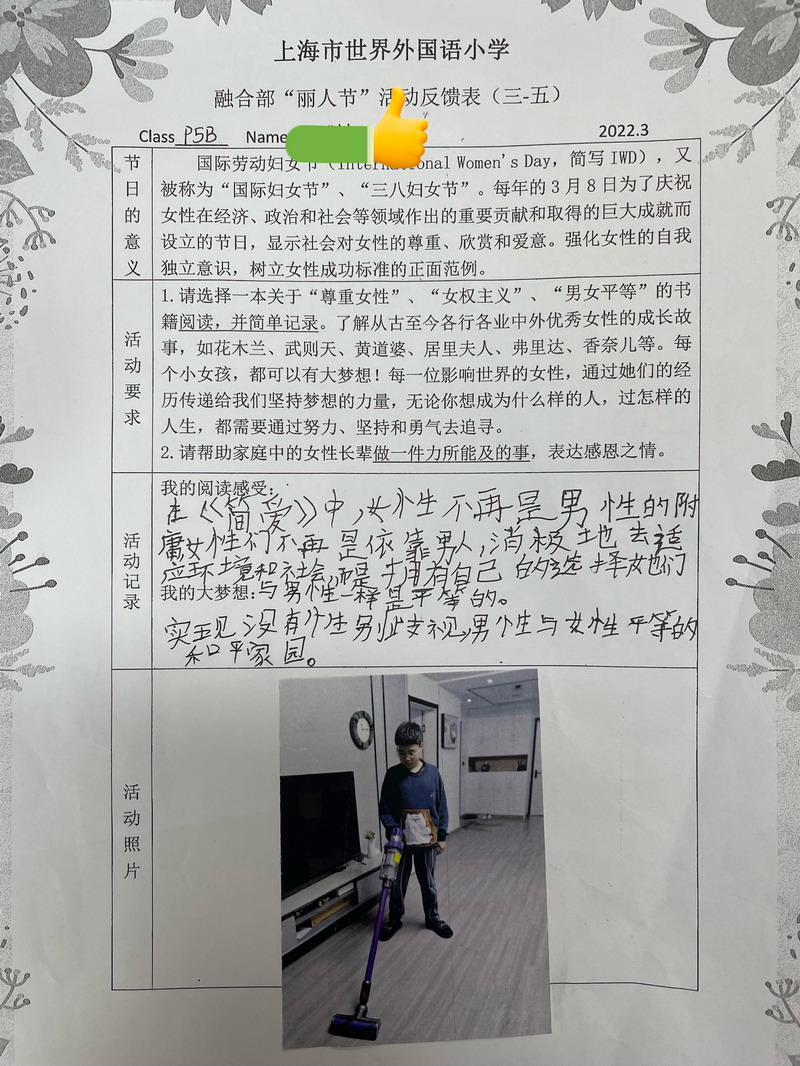 上海市世界外国语小学
融合部“丽人节”活动反馈表（三-五）
Class P5B Name 2022.3
节日的意义
国际劳动妇女节（International Women's Day，简写 IWD），又
被称为“国际妇女节”、“三八妇女节”。每年的 3 月 8 日为了庆祝
女性在经济、政治和社会等领域作出的重要贡献和取得的巨大成就而
设立的节日，显示社会对女性的尊重、欣赏和爱意。强化女性的自我
独立意识，树立女性成功标准的正面范例。
活动要求
1.请选择一本关于“尊重女性”、“女权主义”、“男女平等”的书
籍阅读，并简单记录。了解从古至今各行各业中外优秀女性的成长故
事，如花木兰、武则天、黄道婆、居里夫人、弗里达、香奈儿等。每
个小女孩，都可以有大梦想！每一位影响世界的女性，通过她们的经
历传递给我们坚持梦想的力量，无论你想成为什么样的人，过怎样的
人生，都需要通过努力、坚持和勇气去追寻。
2.请帮助家庭中的女性长辈做一件力所能及的事，表达感恩之情。
活动记录
我的阅读感受：
在《简爱》中，女性不再是男性的附
庸女性们不再是依靠男人，消极地去适
应环境和社会，而是拥有自己的选择女她们
我的大梦想：与男性一样是平等的。
实现没有性别歧视，男性与女性平等的
和平家园。
活动照片